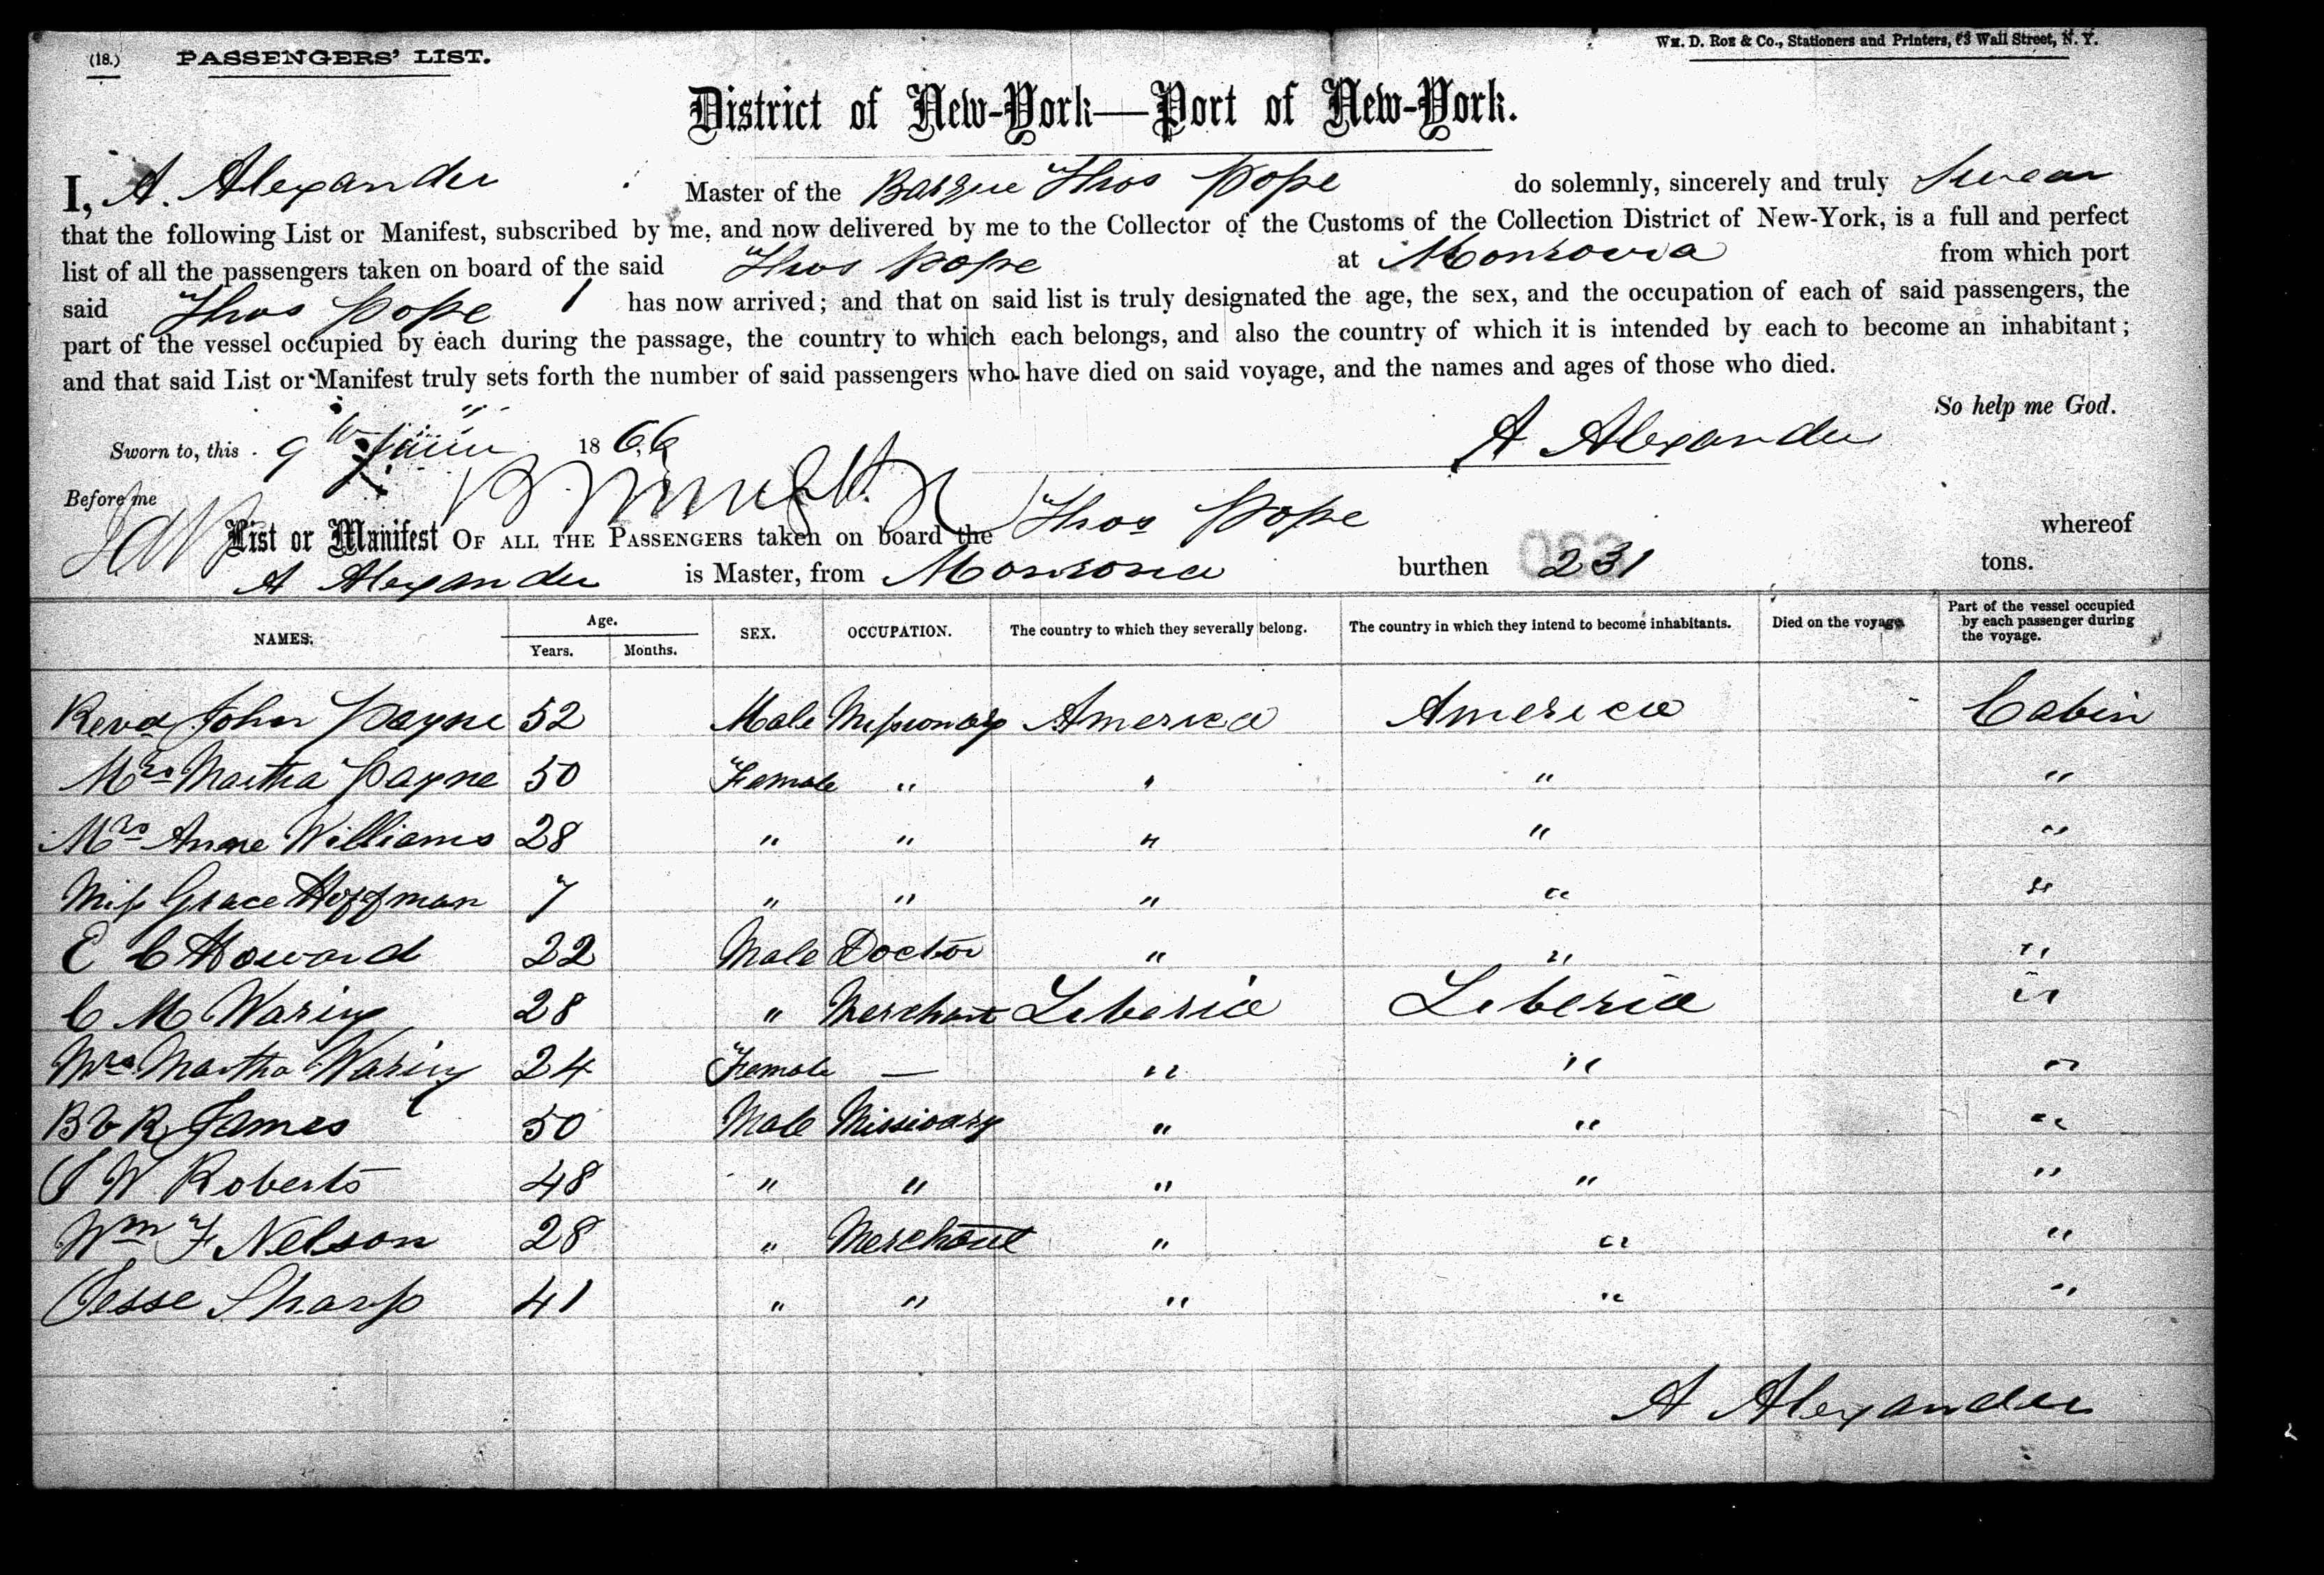 (18.) PASSENGERS' LIST. WM. D. ROE & Co., Stationers and Printers, 63 Wall Street, N. Y.
District of New-York—Port of New-York.
I, A. Alexander Master of the Barque Thos Pope do solemnly, sincerely and truly Swear
that the following List or Manifest, subscribed by me, and now delivered by me to the Collector of the Customs of the Collection District of New-York, is a full and perfect
list of all the passengers taken on board of the said Thos Pope at Monrovia from which port
said Thos Pope has now arrived; and that on said list is truly designated the age, the sex, and the occupation of each of said passengers, the
part of the vessel occupied by each during the passage, the country to which each belongs, and also the country of which it is intended by each to become an inhabitant;
and that said List or Manifest truly sets forth the number of said passengers who have died on said voyage, and the names and ages of those who died.
So help me God.
Sworn to, this 9th 1866 A Alexander
Before me
List or Manifest OF ALL THE PASSENGERS taken on board the Thos Pope whereof
A Alexander is Master, from Monrovia burthen 231 tons.
NAMES. Age. Years. Months. SEX. OCCUPATION. The country to which they severally belong. The country in which they intend to become inhabitants. Died on the voyage. Part of the vessel occupied by each passenger during the voyage.
Revd John Payne 52 Male Missionary America America Cabin
Mrs Martha Payne 50 Female " " " "
Mrs Anne Williams 28 " " " " "
Miss Grace Hoffman 7 " " " " "
E C Howard 22 Male Doctor " " "
C M Waring 28 " Merchant Liberia Liberia "
Mrs Martha Waring 24 Female — " " "
B V R James 50 Male Missioary " " "
J W Roberts 48 " " " " "
Wm F Nelson 28 " Merchant " " "
Jesse Sharp 41 " " " " "
A Alexander